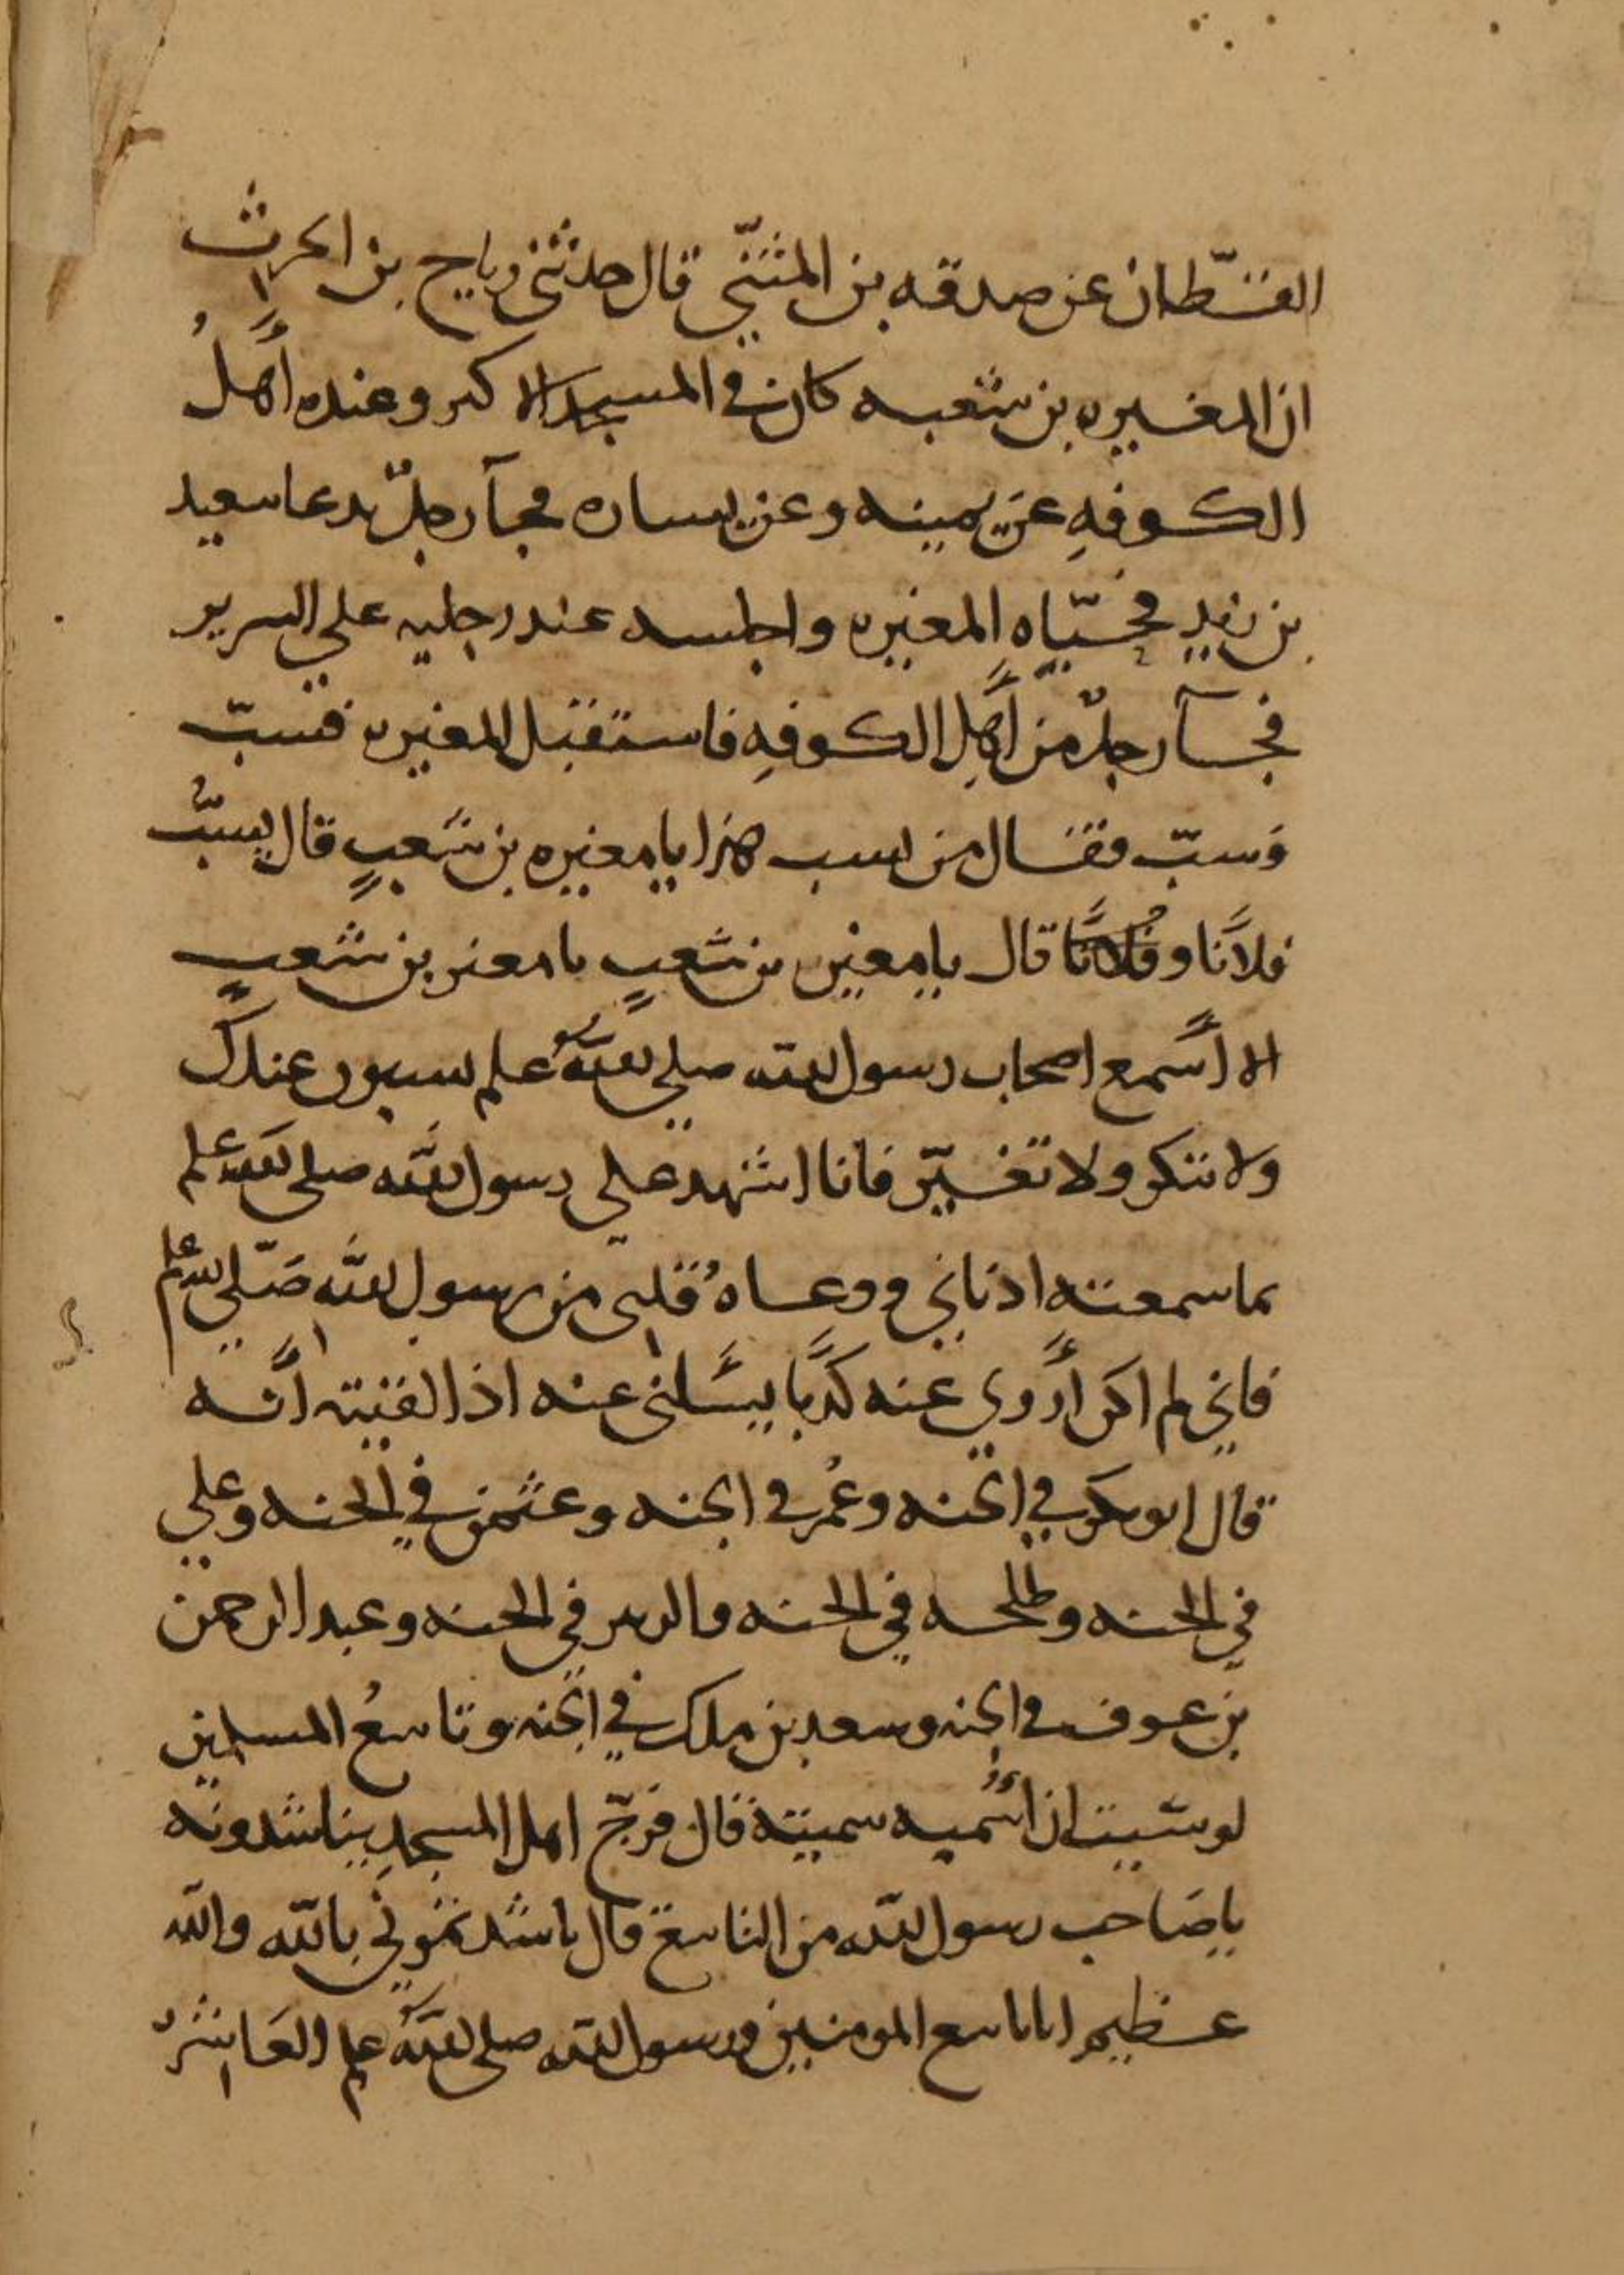 القطّان عن صدقه بن المثنّي قال حدثني رياح بن الحرث
ان المغيره بن شعبه كان في المسجد الاكبر وعنده أهلُ
الكوفهِ عن يمينه وعن يساره فجآ رجلٌ يدعا سعيد
بن زيدٍ فحيّاه المغيره واجلسه عند رجليه علي السرير
فجآ رجلٌ من أهلِ الكوفهِ فاستقبل المغيره فسبّ
وَسبّ فقال من يسب هذا يا مغيره بن شعبٍ قال يسبُّ
فلانًا وفُلانًا قال يا مغير بن شعبٍ يا مغير بن شعبٍ
الا أسمع اصحاب رسول الله صلي الله علم يسبون عندك
ولا تنكر ولا تغيّر فانا اشهد علي رسول الله صلي الله علم
بما سمعته اذناني ووعاهُ قلبي من رسول الله صَلّي الله علم
فاني لم اكن أروي عنه كذبًا يسَلني عنه اذا لقيته أنّه
قال ابو بكر في الجنه وعُمر في الجنه وعثمن في الجنه وعلي
في الجنه وطلحه في الجنه والزبير في الجنه وعبد الرحمن
بن عوف في الجنه وسعد بن ملك في الجنه وتاسعُ المسلمين
لو شيت ان أسُميه سميته قال فرجّ اهل المسجدِ يناشدونه
يا صَاحب رسول الله من التاسع قال ناشدتموني بالله والله
عظيم انا تاسع المومنين ورسول الله صلي الله علم العَاشرُ